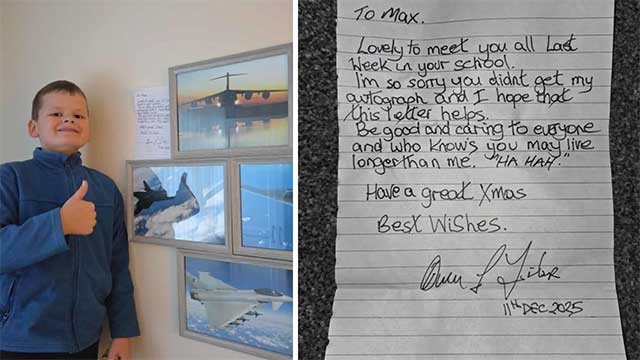 To Max.
Lovely to meet you all Last
Week in your school.
I'm so sorry you didnt get my
autograph and I hope that
this letter helps.
Be good and caring to everyone
and who know's you may live
longer than me. "HA HAH."
Have a great Xmas
Best Wishes.
11TH DEC 2025